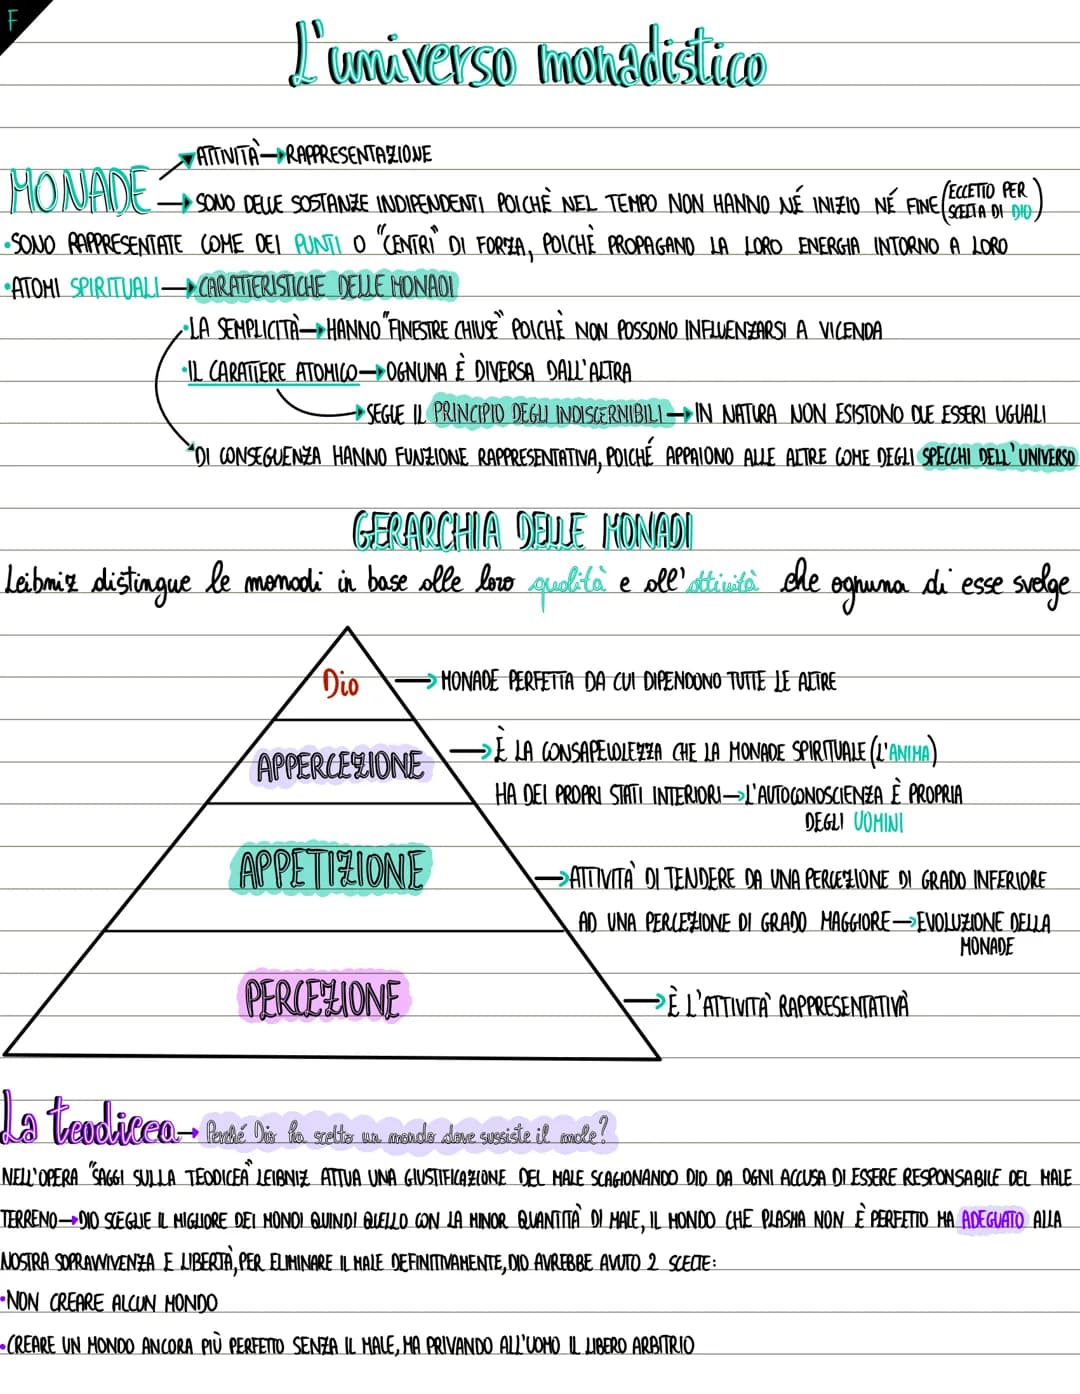 F
L'universo monadistico
ATTIVITÀ→RAPPRESENTAZIONE
MONADE → SONO DELLE SOSTANZE INDIPENDENTI POICHÈ NEL TEMPO NON HANNO NÉ INIZIO NÉ FINE (ECCETTO PER SCELTA DI DIO)
•SONO RAPPRESENTATE COME DEI PUNTI O "CENTRI" DI FORZA, POICHÈ PROPAGANO LA LORO ENERGIA INTORNO A LORO
•ATOMI SPIRITUALI→CARATTERISTICHE DELLE MONADI
•LA SEMPLICITÀ→HANNO "FINESTRE CHIUSE" POICHÈ NON POSSONO INFLUENZARSI A VICENDA
•IL CARATTERE ATOMICO→OGNUNA È DIVERSA DALL'ALTRA
→SEGUE IL PRINCIPIO DEGLI INDISCERNIBILI→IN NATURA NON ESISTONO DUE ESSERI UGUALI
DI CONSEGUENZA HANNO FUNZIONE RAPPRESENTATIVA, POICHÉ APPAIONO ALLE ALTRE COME DEGLI SPECCHI DELL'UNIVERSO
GERARCHIA DELLE MONADI
Leibniz distingue le monadi in base alle loro qualità e all'attività che ognuna di esse svolge
Dio → MONADE PERFETTA DA CUI DIPENDONO TUTTE LE ALTRE
APPERCEZIONE → È LA CONSAPEVOLEZZA CHE LA MONADE SPIRITUALE (L'ANIMA)
HA DEI PROPRI STATI INTERIORI→L'AUTOCONOSCIENZA È PROPRIA
DEGLI UOMINI
APPETIZIONE → ATTIVITÀ DI TENDERE DA UNA PERCEZIONE DI GRADO INFERIORE
AD UNA PERCEZIONE DI GRADO MAGGIORE→EVOLUZIONE DELLA
MONADE
PERCEZIONE → È L'ATTIVITÀ RAPPRESENTATIVÀ
La teodicea→ Perché Dio ha scelto un mondo dove sussiste il male?
NELL'OPERA "SAGGI SULLA TEODICEA" LEIBNIZ ATTUA UNA GIUSTIFICAZIONE DEL MALE SCAGIONANDO DIO DA OGNI ACCUSA DI ESSERE RESPONSABILE DEL MALE
TERRENO→DIO SCEGLIE IL MIGLIORE DEI MONDI QUINDI QUELLO CON LA MINOR QUANTITÀ DI MALE, IL MONDO CHE PLASMA NON È PERFETTO MA ADEGUATO ALLA
NOSTRA SOPRAVVIVENZA E LIBERTÀ, PER ELIMINARE IL MALE DEFINITIVAMENTE, DIO AVREBBE AVUTO 2 SCELTE:
•NON CREARE ALCUN MONDO
•CREARE UN MONDO ANCORA PIÙ PERFETTO SENZA IL MALE, MA PRIVANDO ALL'UOMO IL LIBERO ARBITRIO